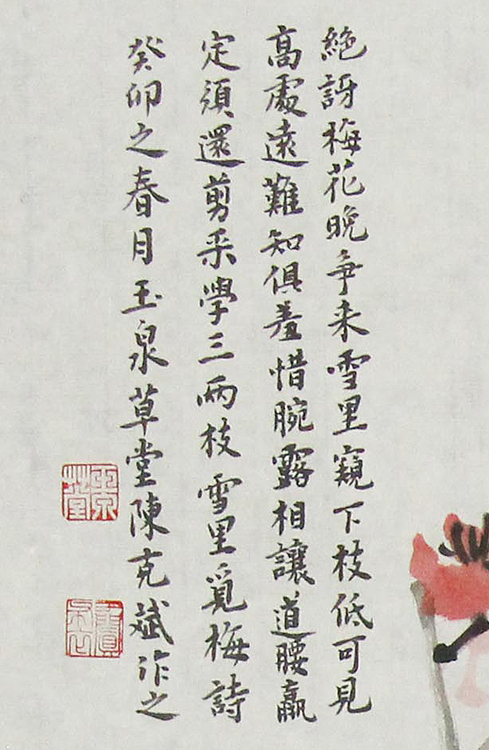 絕訝梅花晚争来雪里窺下枝低可見
高處遠難知俱羞惜腕露相讓道腰羸
定須還剪采學三兩枝雪里覓梅詩
癸卯之春月玉泉草堂陳克斌作之
玉泉草堂